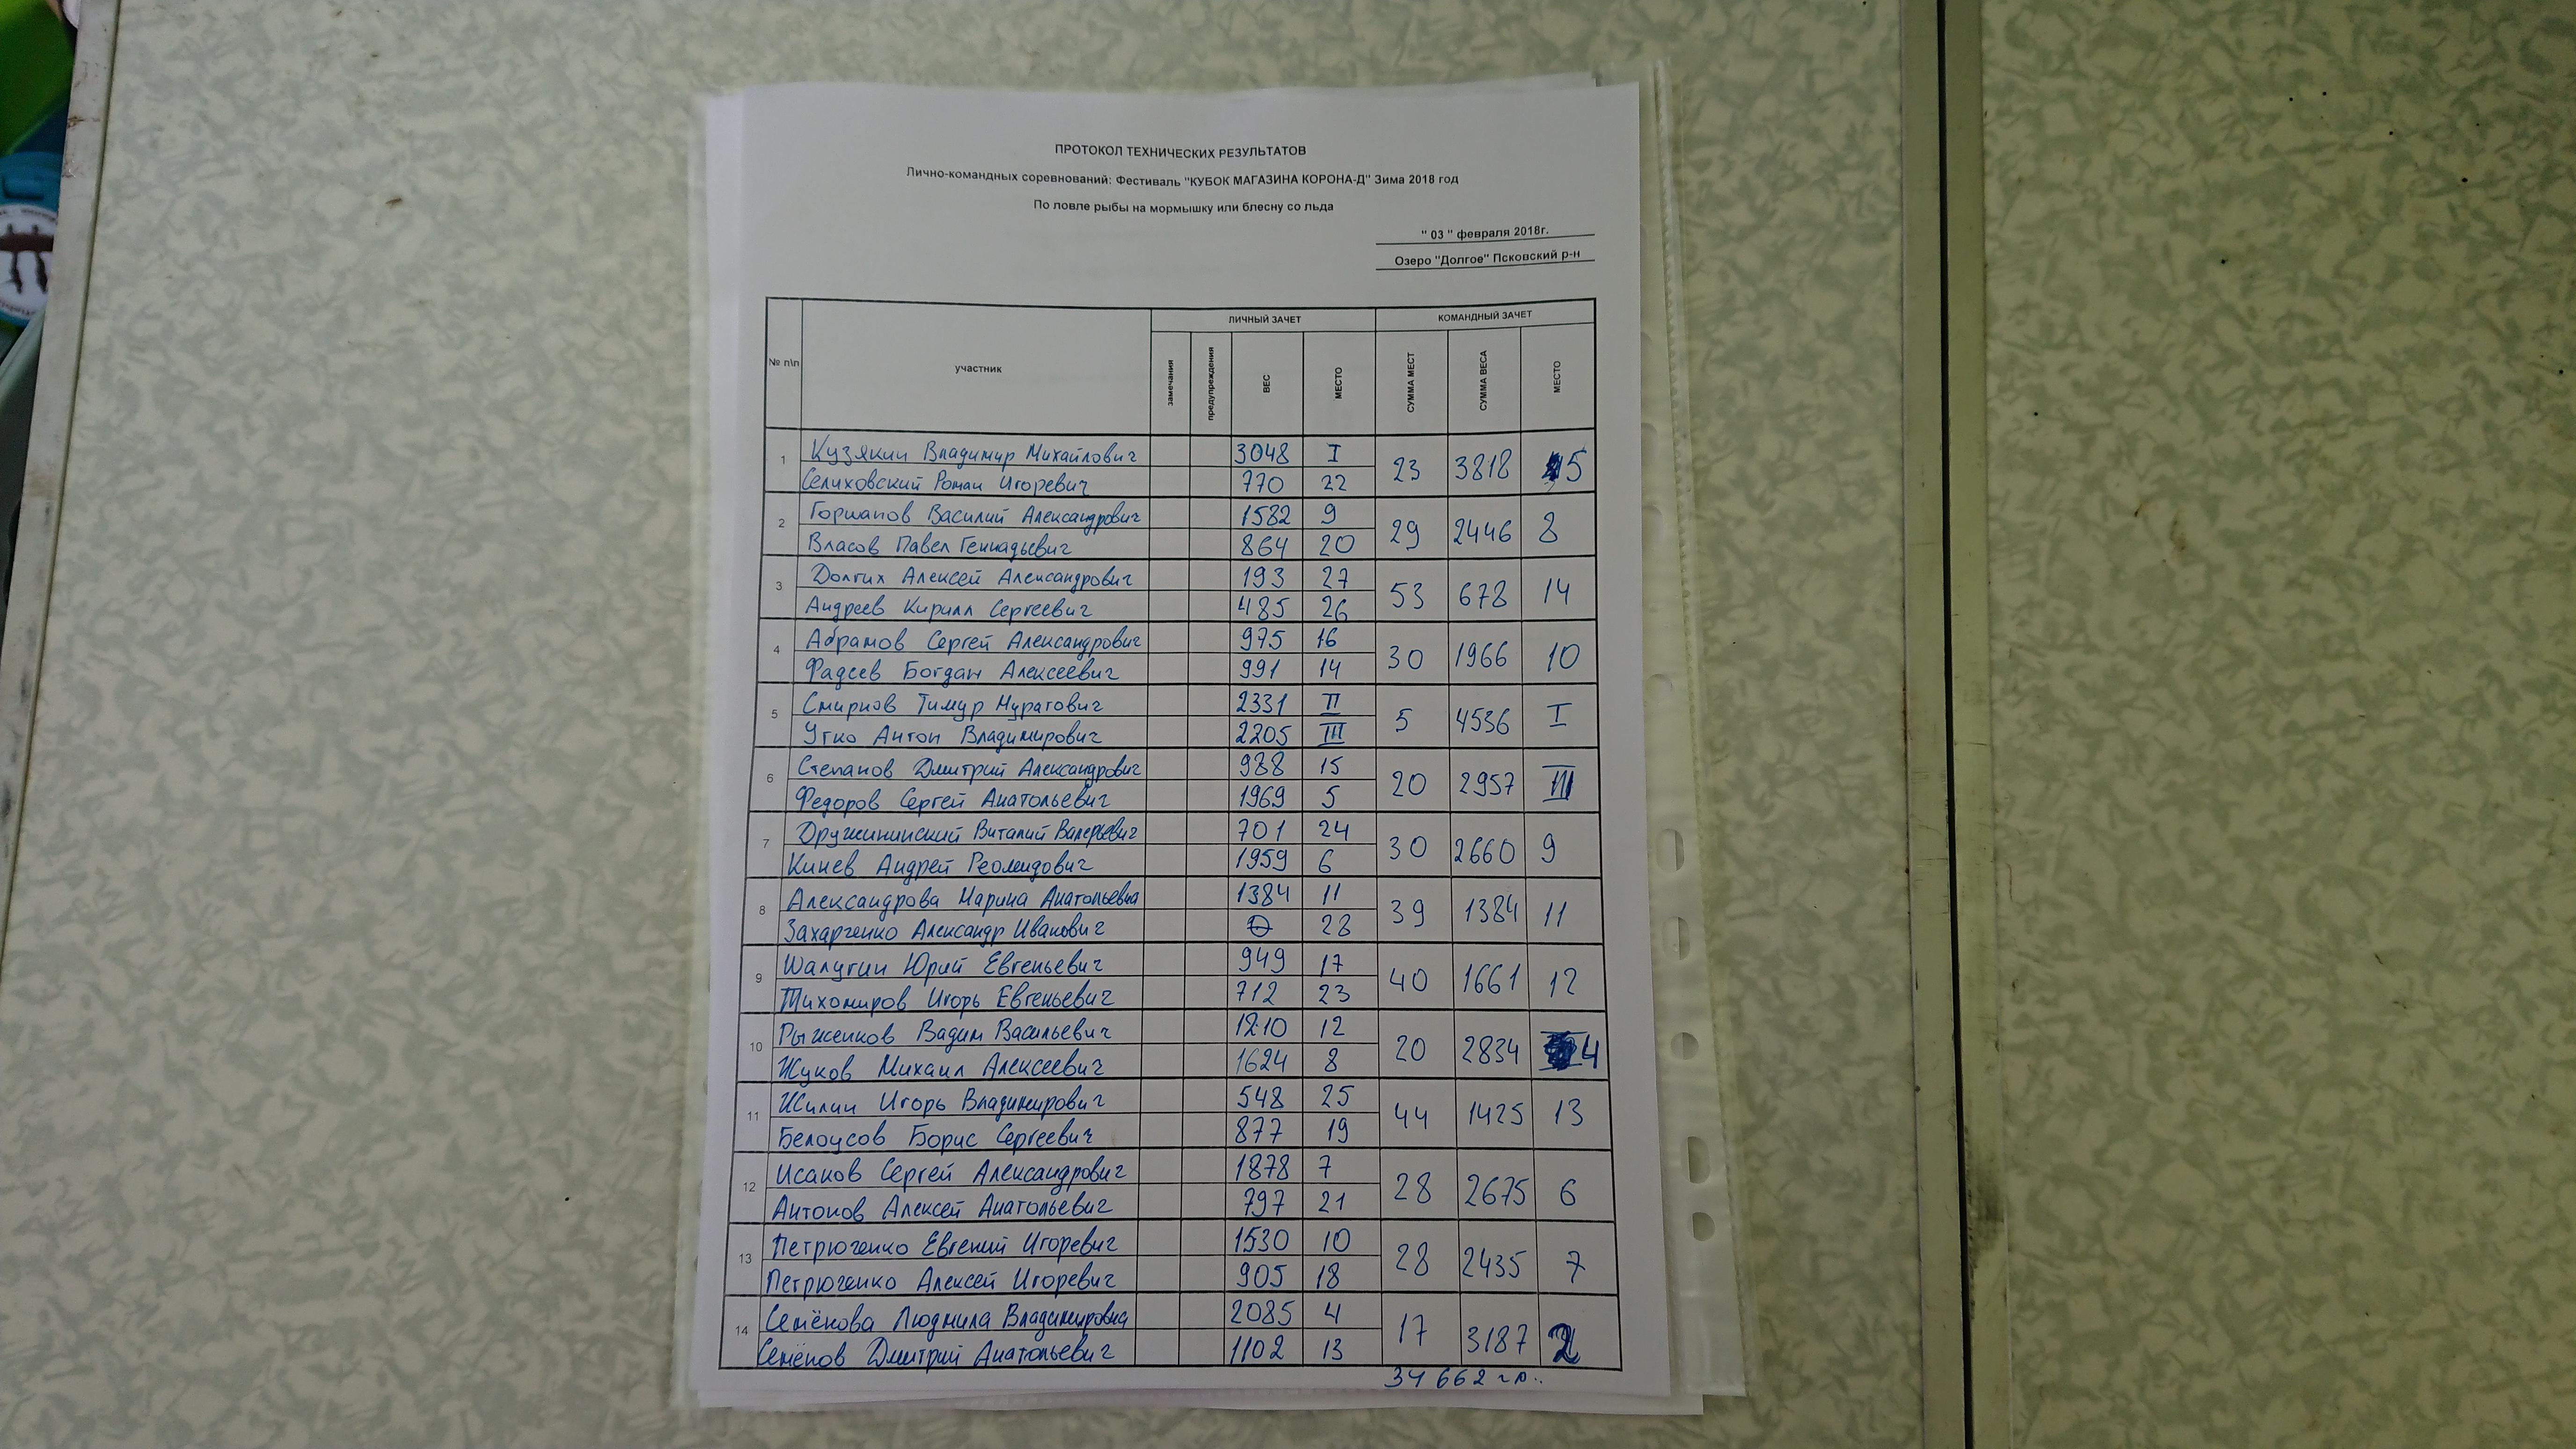 ПРОТОКОЛ ТЕХНИЧЕСКИХ РЕЗУЛЬТАТОВ
Лично-командных соревнований: Фестиваль "КУБОК МАГАЗИНА КОРОНА-Д" Зима 2018 год
По ловле рыбы на мормышку или блесну со льда
" 03 " февраля 2018г.
Озеро "Долгое" Псковский р-н
№ п\п участник ЛИЧНЫЙ ЗАЧЕТ КОМАНДНЫЙ ЗАЧЕТ
замечания предупреждения ВЕС МЕСТО СУММА МЕСТ СУММА ВЕСА МЕСТО
1 Кузякин Владимир Михайлович 3048 I 23 3818 5
Селиховский Роман Игоревич 770 22
2 Горшапов Василий Александрович 1582 9 29 2446 8
Власов Павел Геннадьевич 864 20
3 Долгих Алексей Александрович 193 27 53 678 14
Андреев Кирилл Сергеевич 485 26
4 Абрамов Сергей Александрович 975 16 30 1966 10
Фадеев Богдан Алексеевич 991 14
5 Смирнов Тимур Муратович 2331 II 5 4536 I
Утко Антон Владимирович 2205 III
6 Степанов Дмитрий Александрович 988 15 20 2957 III
Федоров Сергей Анатольевич 1969 5
7 Дружининский Виталий Валерьевич 701 24 30 2660 9
Кинев Андрей 1959 6
8 Александрова Марина Анатольевна 1384 11 39 1384 11
Захарченко Александр Иванович 0 28
9 Шалугин Юрий Евгеньевич 949 17 40 1661 12
Тихомиров Игорь Евгеньевич 712 23
10 Рыженков Вадим Васильевич 1210 12 20 2834 4
Жуков Михаил Алексеевич 1624 8
11 Жилин Игорь Владимирович 548 25 44 1425 13
Белоусов Борис Сергеевич 877 19
12 Исаков Сергей Александрович 1878 7 28 2675 6
Антонов Алексей Анатольевич 797 21
13 Петрюченко Евгений Игоревич 1530 10 28 2435 7
Петрюченко Алексей Игоревич 905 18
14 Семёнова Людмила Владимировна 2085 4 17 3187 2
Семёнов Дмитрий Анатольевич 1102 13
34 662 гр..